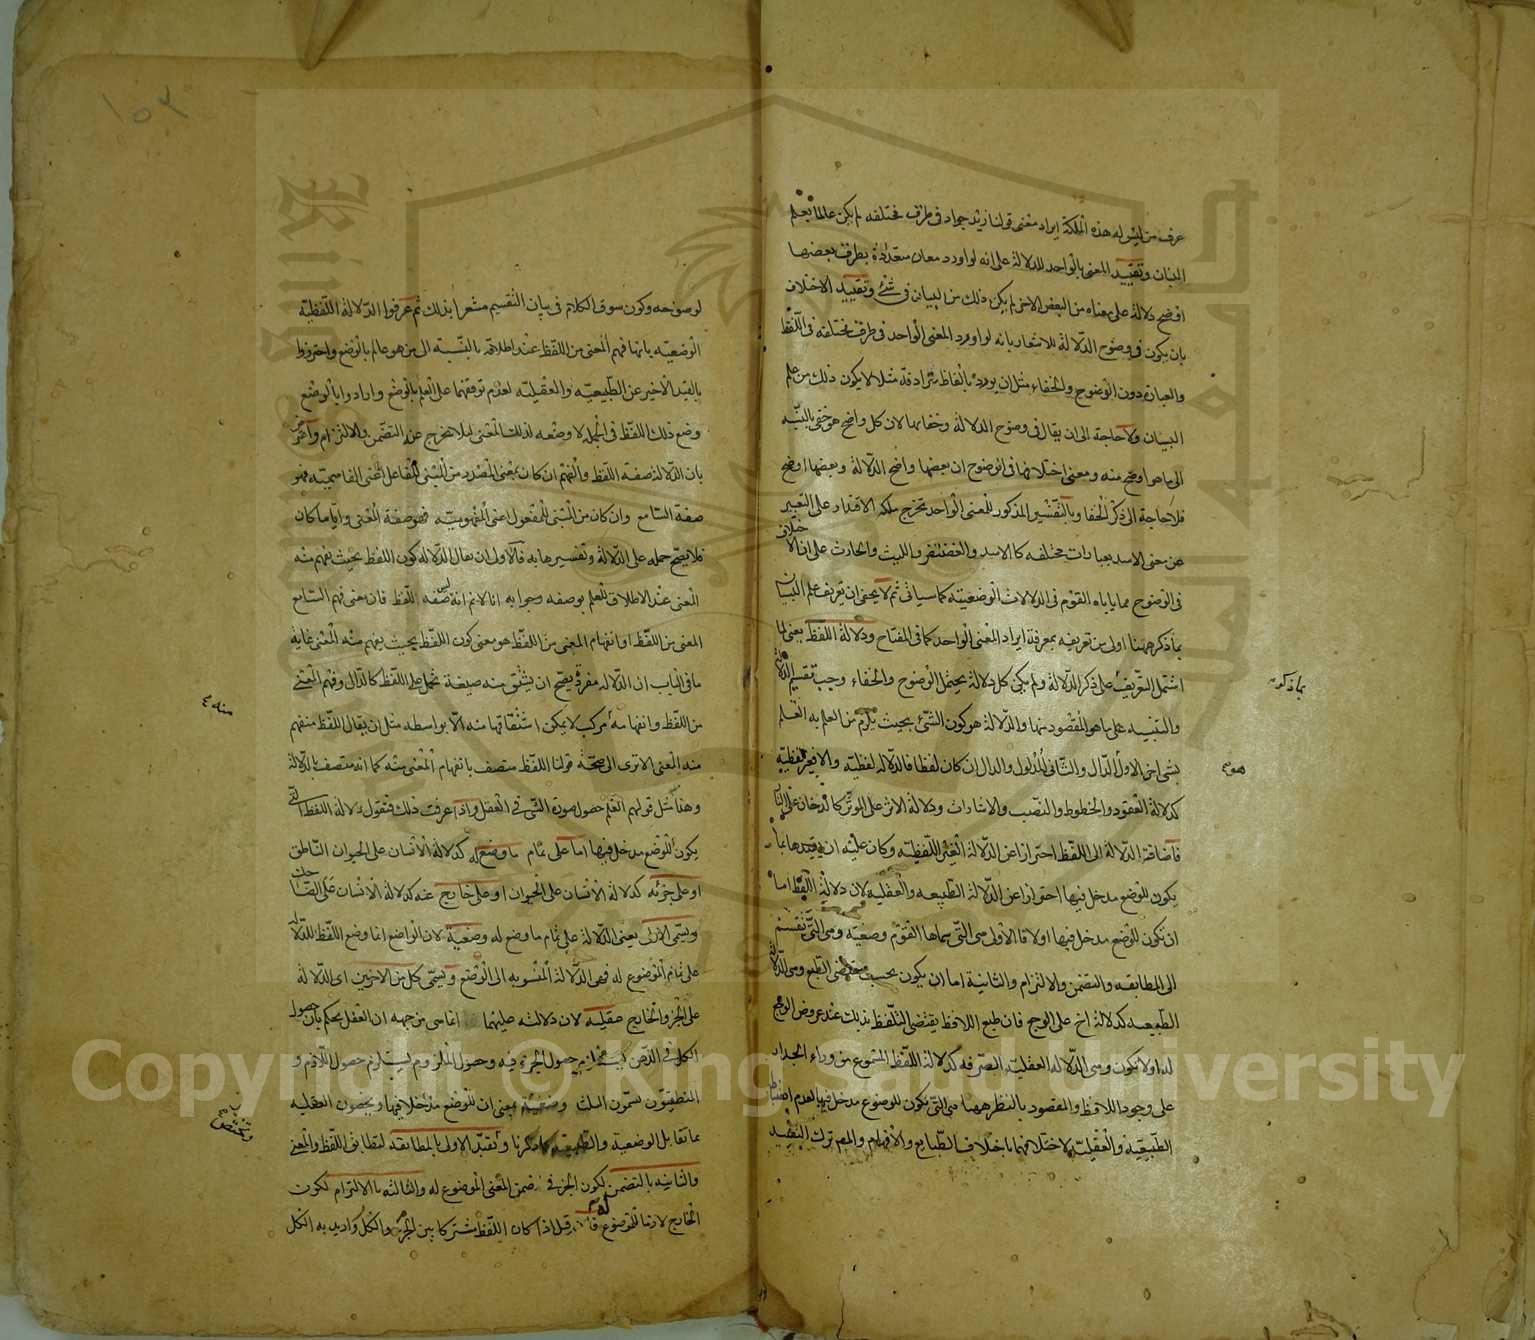 عرف من ليس له هذه الملكة ايراد معنى قولنا زيد جواد فى طرق مختلفه لم يكن عالما بعلم
البيان وتقييد المعنى بالواحد للدلالة على انه لو اورد معان متعددة بطرق بعضها
اوضح دلالة على معناه من البعض الاخر لم يكن ذلك من البيان فى شئ وتقييد الاختلاف
بان يكون فى وضوح الدلالة للاشعار بانه لو اورد المعنى الواحد فى طرق مختلفه فى اللفظ
والعبارة دون الوضوح والخفاء مثل ان يورده بالفاظ مترادفة مثلا لا يكون ذلك من علم
البيان ولا حاجة الى ان يقال فى وضوح الدلالة وخفائها لان كل واضح هو خفى بالنسبه
الى ما هو اوضح منه ومعنى اختلافها فى الوضوح ان بعضها واضح الدلالة وبعضها اوضح
فلا حاجة الى ذكر الخفا وبالتفسير المذكور للمعنى الواحد تخرج ملكة الاقتدار على التعبير
عن معنى الاسد بعبارات مختلفه كالاسد والغضنفر والليث والحارث على ان الاختلاف
فى الوضوح مما ياباه القوم فى الدلالات الوضعيته كما سياتى ثم لا يخفى ان تعريف علم البيان
بما ذكر ههنا اولى من تعريفه بمعرفة ايراد المعنى الواحد كما فى المفتاح ودلالة اللفظ يعنى لما
اشتمل التعريف على ذكر الدلالة ولم يكن كل دلالة يحتمل الوضوح والخفاء وجب تقسيم الدلالة
والتنبيه على ما هو المقصود منها والدلالة هو كون الشئ بحيث يلزم من العلم به العلم
بشى اخر الاول الدال والثانى المدلول والدال ان كان لفظا فالدلالة لفظيته والا فغير لفظيته
كدلالة العقود والخطوط والنصب والاشارات ودلالة الاثر على الموثر كالدخان على النار
فاضافة الدلالة الى اللفظ احترازا عن الدلالة الغير اللفظيته وكان عليه ان يقيدها بما
يكون للوضع مدخل فيها احترازا عن الدلالة الطبيعه والعقليه لان دلالة اللفظ اما
ان تكون للوضع مدخل فيها اولا فالاولى هى التى سماها القوم وضعيه وهى التى تنقسم
الى المطابقه والتضمن والالتزام والثانية اما ان يكون بحسب مقتضى الطبع وهى الدلالة
الطبيعيه كدلالة اخ على الوجع فان طبع اللافظ يقتضى التلفظ بذلك عند عروض الوجع
له او لا تكون وهى الدلالة العقليته الصرفه كدلالة اللفظ المسموع من وراء الجدار
على وجود اللافظ والمقصود بالنظر ههنا هى التى يكون للوضوع مدخل فيها لعدم انضباط
الطبيعيه والعقليته لاختلافهما باختلاف الطبايع والافهام والمص ترك التقييد
بما ذكره
هو
لوضوحه وكون سوق الكلام فى بيان التقسيم مشعرا بذلك ثم عرفوا الدلالة اللفظيه
الوضعيه بانها فهم المعنى من اللفظ عند اطلاقه بالنسبة الى من هو عالم بالوضع واحترزوا
بالقيد الاخير عن الطبيعيه والعقليته لعدم توقفهما على العلم بالوضع وارادوا بالوضع
وضع ذلك اللفظ فى الجمله لا وضعه لذلك المعنى لئلا يخرج عنه التضمن والالتزام واعترض
بان الدلالة صفة اللفظ والفهم ان كان بمعنى المصدر من المبنى للفاعل اعنى الفاهميته فهو
صفة السامع وان كان من المبنى للمفعول اعنى المفهوميته فهو صفة المعنى واياما كان
فلا يصح حمله على الدلالة وتفسيرها به فالاولى ان يقال الدلالة كون اللفظ بحيث يفهم منه
المعنى عند الاطلاق للعلم بوضعه وجوابه انا لا نم انه ليس صفه اللفظ فان معنى فهم السامع
المعنى من اللفظ او انفهام المعنى من اللفظ هو معنى كون اللفظ بحيث يفهم منه المعنى غاية
ما فى الباب ان الدلالة مفرد يصح ان يشتق منه صيغة تحمل على اللفظ كالدال وفهم المعنى
من اللفظ وانفهامه مركب لا يمكن اشتقاقها منه الا بواسطه مثل ان يقال اللفظ منفهم
منه المعنى الا ترى الى صحة قولنا اللفظ متصف بانفهام المعنى منه كما انه متصف بالدلالة
وهذا مثل قولهم العلم حصول صورة الشى فى العقل واذا عرفت ذلك فنقول دلالة اللفظ التى
يكون للوضع مدخل فيها اما على تمام ما وضع له كدلالة الانسان على الحيوان الناطق
او على جزئه كدلالة الانسان على الحيوان او على خارج عنه كدلالة الانسان على الضاحك
ويسمى الاولى يعنى الدلالة على تمام ما وضع له وضعية لان الواضع انما وضع اللفظ للدلالة
على تمام الموضوع له فهى الدلالة المنسوبه الى الوضع ويسمى كل من الاخيرين اى الدلالة
على الجز والخارج عقليه لان دلالته عليهما انما هى من جهه ان العقل يحكم بان حصول
الكل فى الذهن يستلزم حصول الجزء فيه وحصول الملزوم يستلزم حصول اللازم و
المنطقيون يسمون الثلث وضعية بمعنى ان للوضع مدخلا فيها ويخصون العقليه
بما تقابل الوضعيه والطبيعيه كما ذكرنا وتقيد الاولى بالمطابقه لتطابق اللفظ والمعنى
والثانيه بالتضمن لكون الجز فى ضمن المعنى الموضوع له والثالثه بالالتزام لكون
الخارج لازما للموضوع له فان قيل اذا كان اللفظ مشتركا بين الجزء والكل واريد به الكل
منه ع